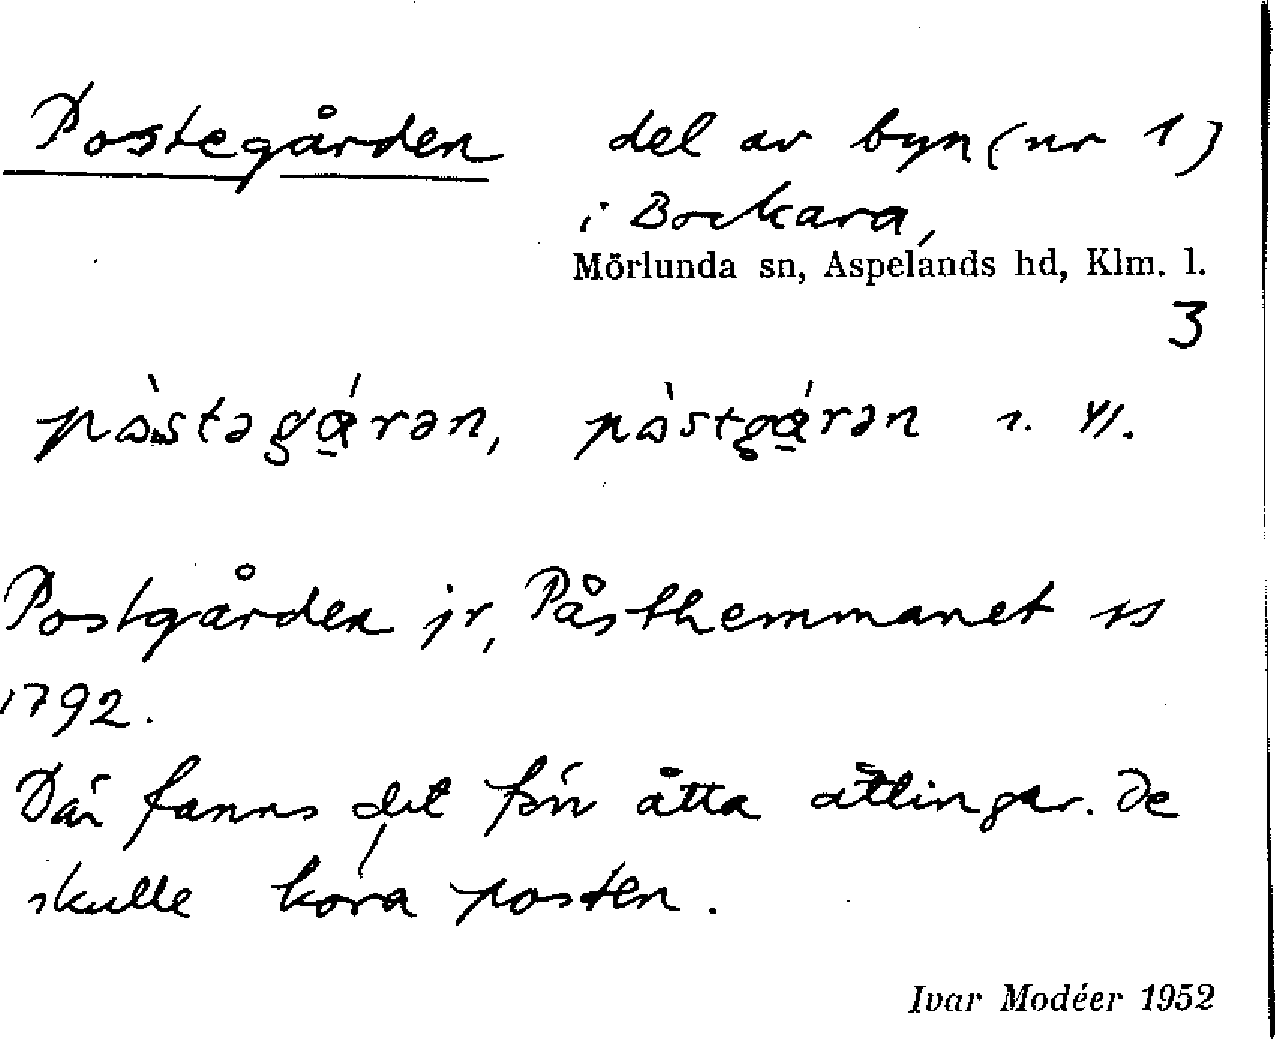 Postegården del av byn (nr 1)
i Bockara,
Mörlunda sn, Aspelands hd, Klm. l.
3
pòstəgɑ́rən, pòstgɑ́rən
Postgården jr, Påsthemmanet ss
1792.
Där fanns det förr åtta åttingar. De
skulle köra posten.
Ivar Modéer 1952